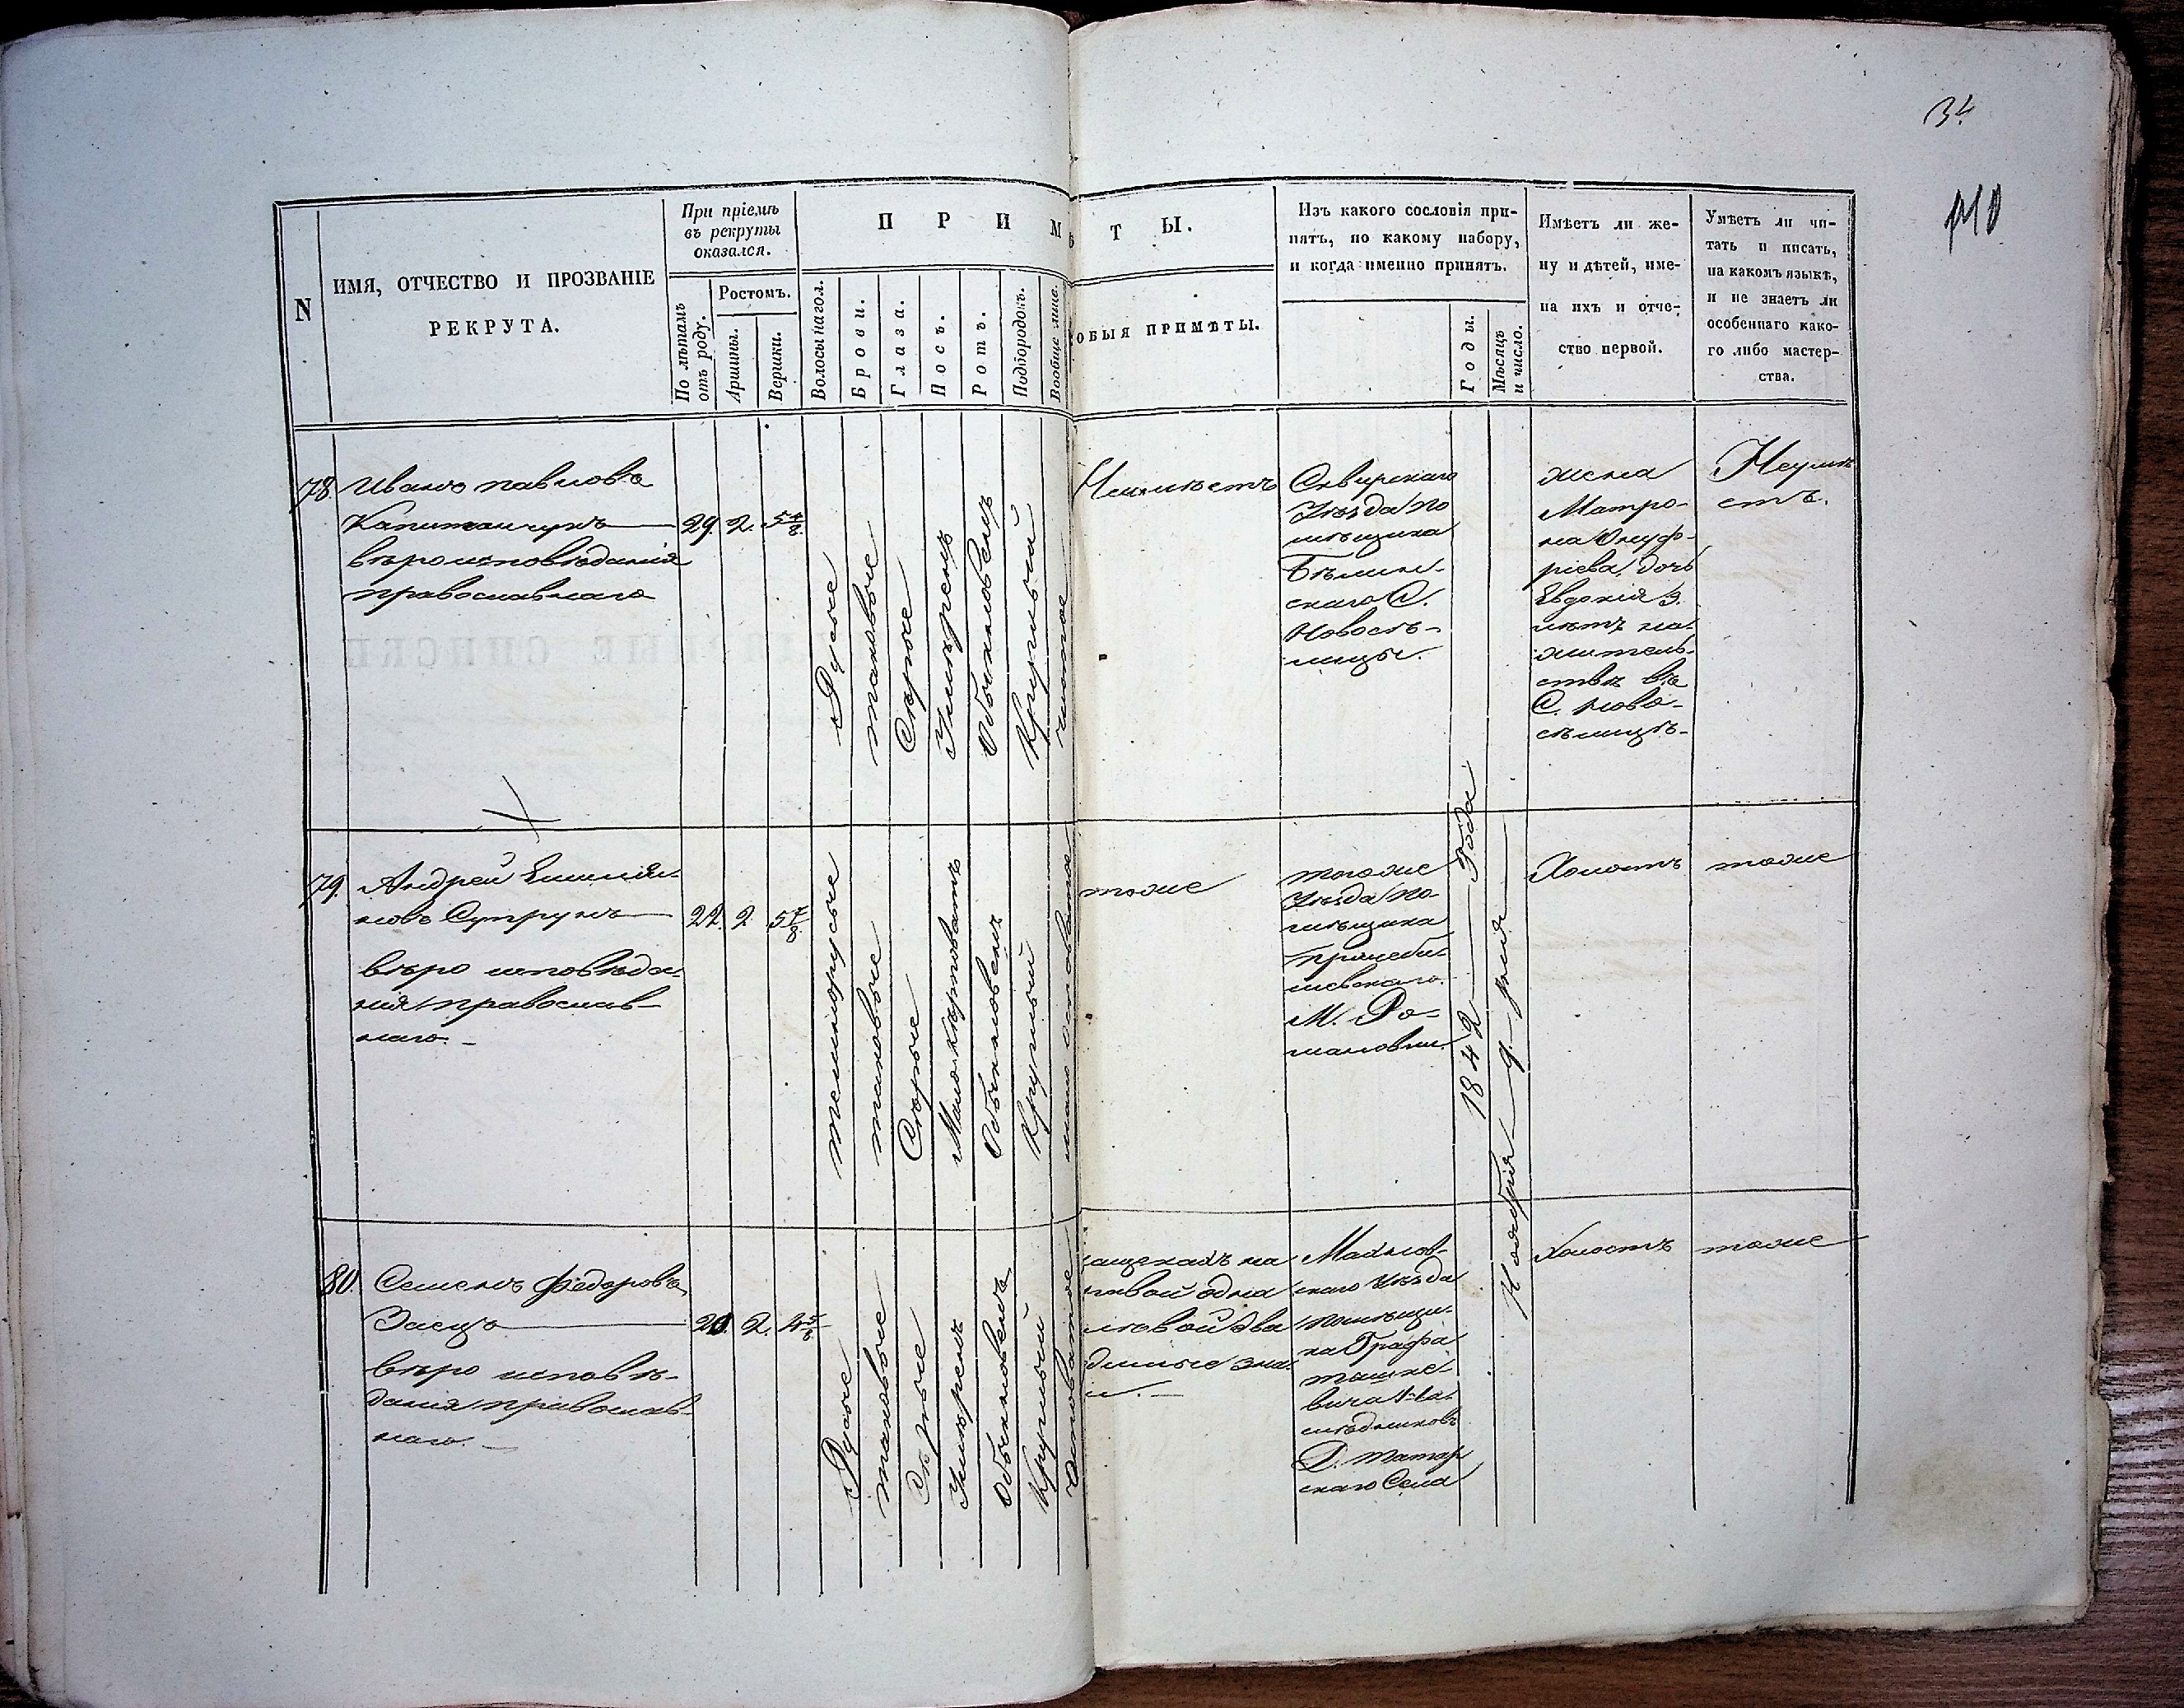 34
110
N
ИМЯ, ОТЧЕСТВО И ПРОЗВАНІЕ
РЕКРУТА.
При пріемѣ
въ рекруты
оказался.
По лѣтамъ
отъ роду.
Ростомъ.
Аршины.
Вершки.
П Р И М Ѣ Т Ы.
Волосы на гол.
Брови.
Глаза.
Носъ.
Ротъ.
Подбородокъ.
Вообще лице.
ОБЫЯ ПРИМѢТЫ.
Изъ какого сословія при-
нятъ, по какому набору,
и когда именно принятъ.
Годы.
Мѣсяцъ
и число.
Имѣетъ ли же-
ну и дѣтей, име-
на ихъ и отче-
ство первой.
Умѣетъ ли чи-
тать и писать,
на какомъ языкѣ,
и не знаетъ ли
особеннаго како-
го либо мастер-
ства.
78.
Иванъ павловъ
Капитанчукъ
вѣроисповѣданія
православнаго
29. 2. 5 4/8
Русые
таковые
Сѣрые
Умѣренъ
Обыкновенъ
Круглый
чистое
Неимѣетъ
Сквирскаго
Уѣзда по
мѣщика
скаго С.
Новосѣ-
лицы.
жена
Матро-
на Онуф-
ріева, дочь
Евдокія 3.
лѣтъ на
житель-
ствѣ въ
С. ново-
сѣлицѣ
Неумѣ
етъ.
79.
Андрей Емилія-
новъ Супрунъ
вѣро исповѣда-
нія православ-
наго.
22. 2. 5 7/8
темнорусые
таковые
Сѣрые
Обыкновенъ
Круглый
тоже
тогоже
Уѣзда по-
мѣщика
М. Ро-
мановки.
1842 Года
Ноября 9. дня
Холостъ
тоже
80.
Семенъ Федоровъ
Заецъ
вѣро исповѣ-
данія православ-
наго.
2. 4 5/8
Русые
таковые
Сѣрые
Умѣренъ
Обыкновенъ
Круглый
щекахъ на
правой одна
лѣвой два
скаго Уѣзда
помѣщи-
ка Графа
тышке-
вича
Д. татар
скаго Села
Холостъ
тоже